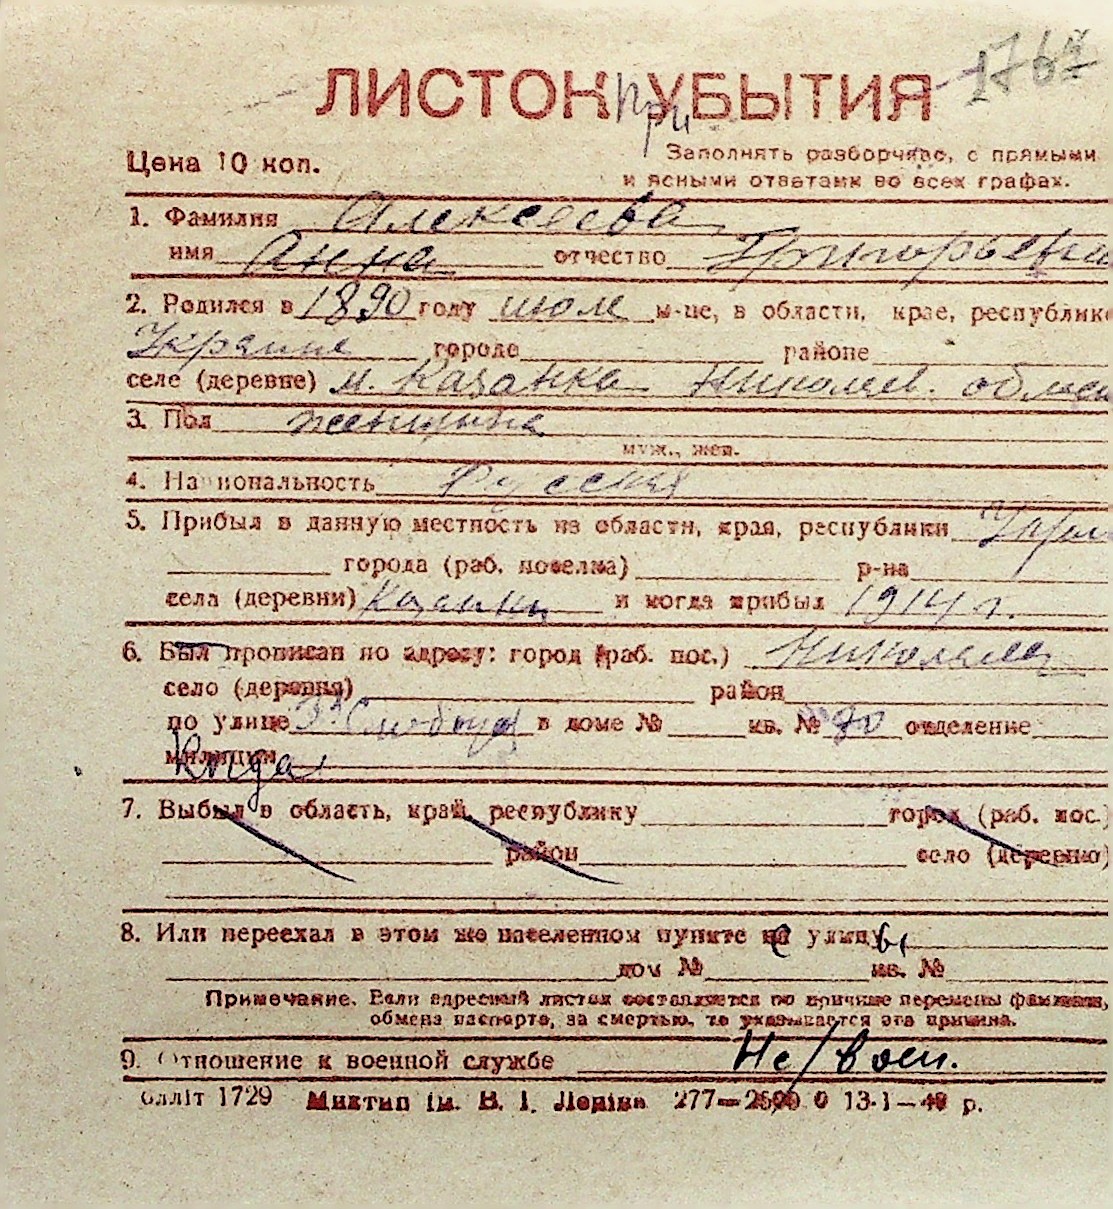 ЛИСТОК УБЫТИЯ
При
Цена 10 коп.
Заполнять разборчиво, с прямыми
и ясными ответами во всех графах.
1. Фамилия Алексеева
имя Анна отчество Григорьевна
2. Родился в 1890 году июле м-це, в области, крае, республике
Украине городе районе
селе (деревне) м. Казанка Николаев. области
3. Пол женщина
муж., жен.
4. Национальность Русская
5. Прибыл в данную местность из области, края, республики
города (раб. поселка) р-на
села (деревни) Казанки и когда прибыл 1914 г.
6. Был прописан по адресу: город (раб. пос.) Николаев
село (деревня) район
по улице 3я Слободск в доме № кв. № 90 отделение
милиции
Куда
7. Выбыл в область, край, республику город (раб. пос.)
район село (деревню)
8. Или переехал в этом же населенном пункте с улицы
дом № кв. №
Примечание. Если адресный листок составляется по причине перемены фамилии,
обмена паспорта, за смертью, то указывается эта причина.
9. Отношение к военной службе Не/воен.
блліт 1729 Миктип ім. В. І. Леніна 277— 0 13-1—49 р.